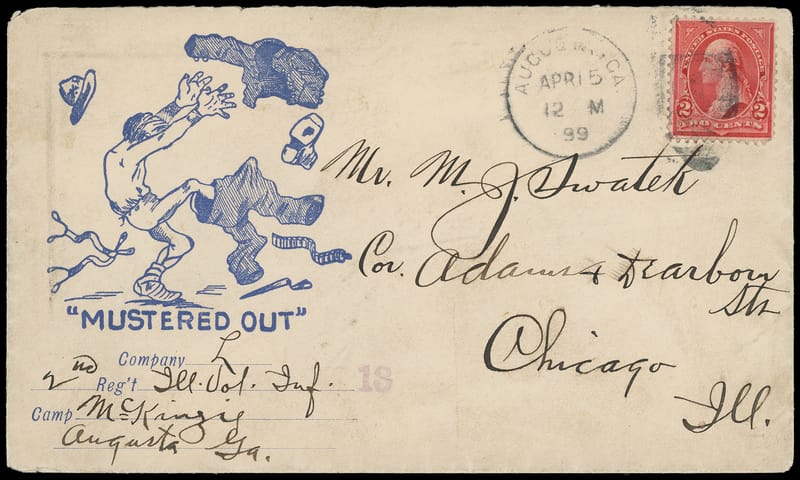 AUGUSTA, GA.
APR 15
12 M
99
UNITED STATES POSTAGE
2 2
TWO CENTS
Mr. M. J. Swatek
Cor. Adams & Dearborn
Sts
Chicago
Ill.
"MUSTERED OUT"
Company L
2nd Reg't Ill. Vol. Inf.
Camp McKinzie
Augusta Ga.
18